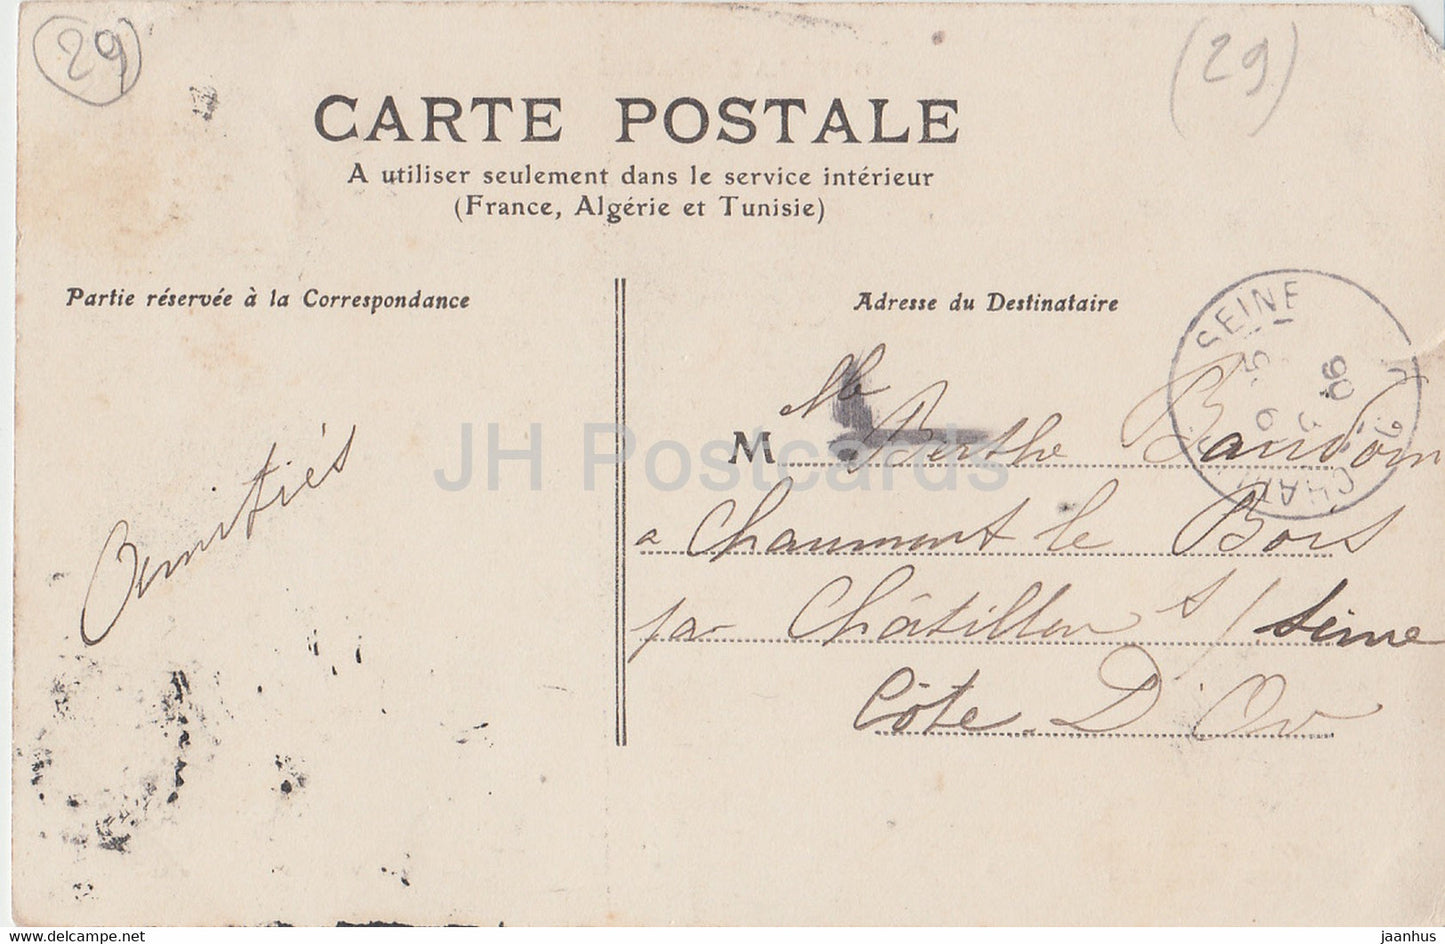 29
(29)
CARTE POSTALE
A utiliser seulement dans le service intérieur
(France, Algérie et Tunisie)
Partie réservée à la Correspondance
Adresse du Destinataire
SEINE
06
CHAT
Mlle Berthe Baudoin
a Chaumont le Bois
par Châtillon s/ seine
Côte. D'Or
Amitiés
JH Postcards
www.delcampe.net
jaanhus